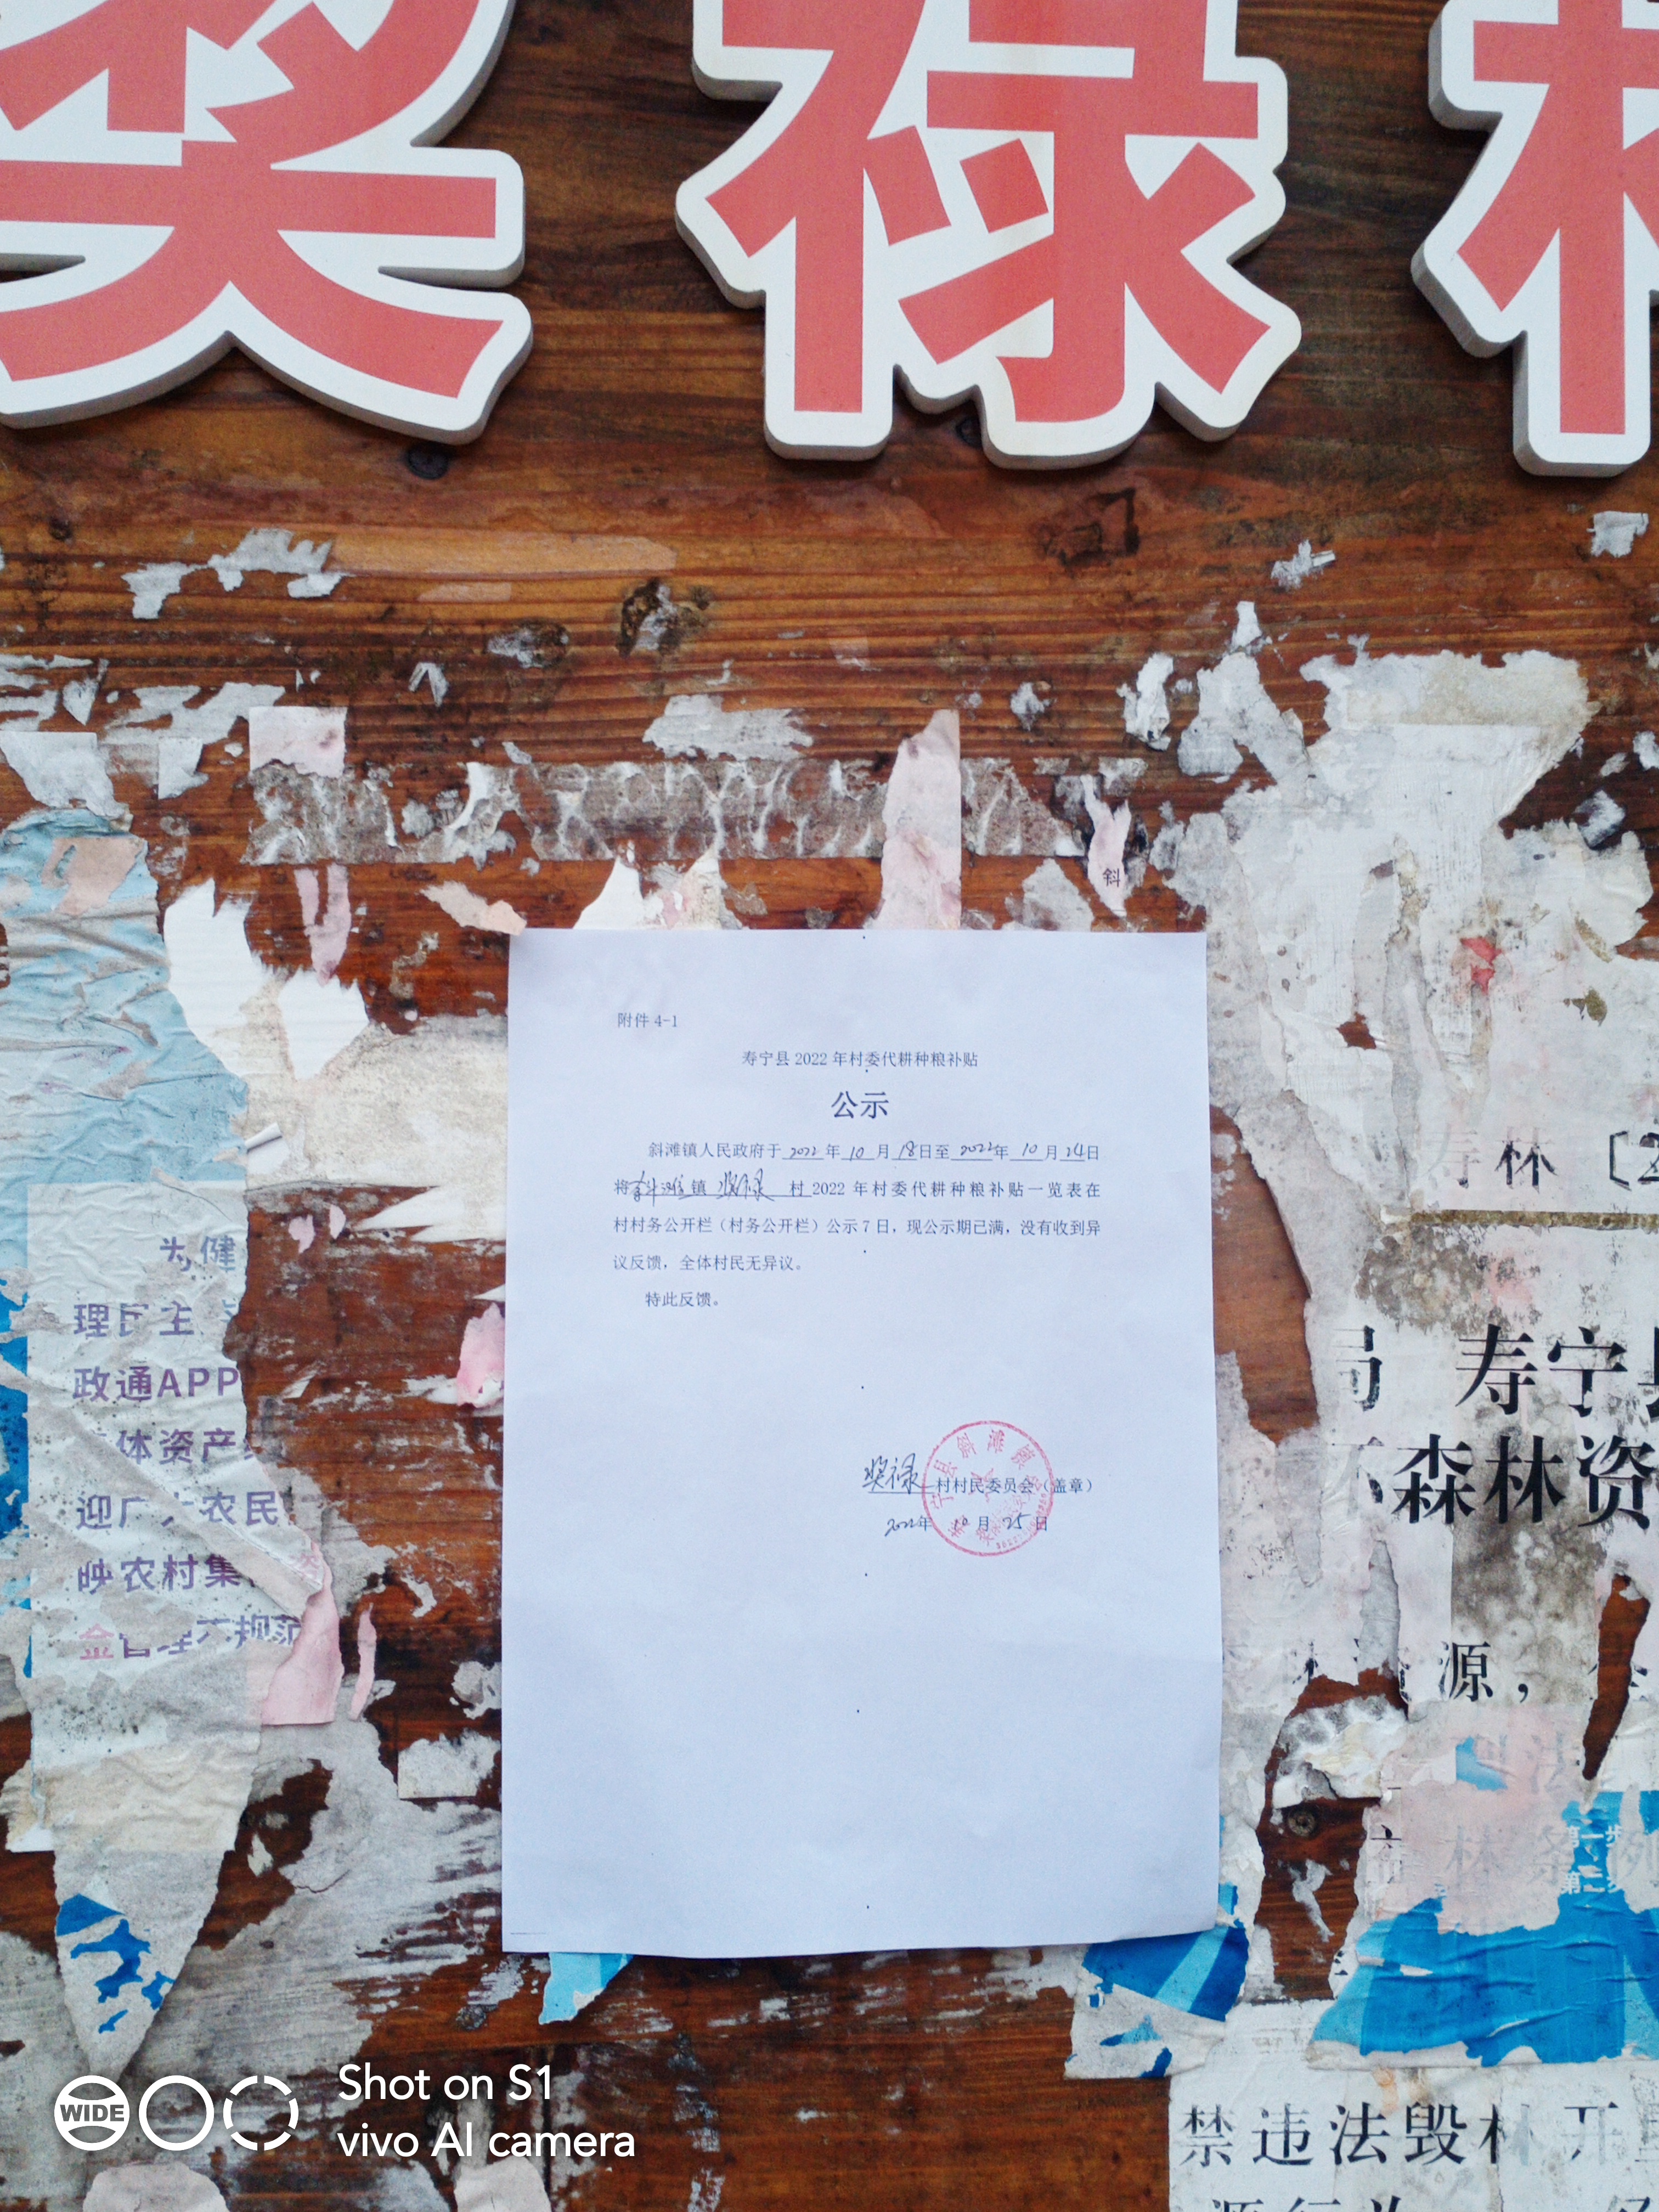 奖禄村
斜
附件 4-1
寿宁县 2022 年村委代耕种粮补贴
公示
斜滩镇人民政府于 2022 年 10 月 18 日至 2022 年 10 月 24 日
将斜滩镇 奖禄 村 2022 年村委代耕种粮补贴一览表在
村村务公开栏（村务公开栏）公示 7 日，现公示期已满，没有收到异
议反馈，全体村民无异议。
特此反馈。
奖禄 村村民委员会（盖章）
2022年 10 月 25 日
为健
理民主
政通APP
体资产
迎广大农民
映农村集
金管理不规范
寿林〔2
局 寿宁县
森林资
源，
林条例
第一步
第二步
禁违法毁林开
源行为
WIDE
Shot on S1
vivo AI camera